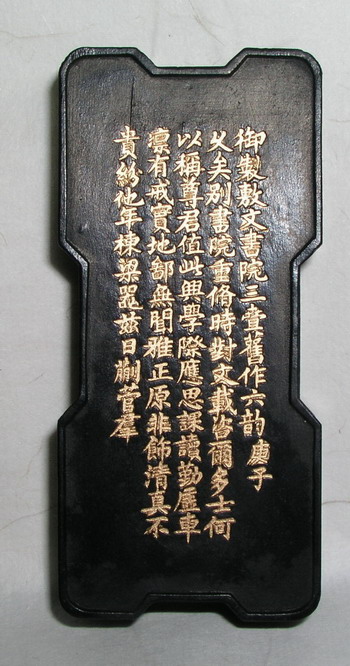 御製敷文書院三疊舊作六韵 庚子
久矣別書院重脩時對文載咨爾多士何
以稱尊君值此興學際應思課讀勤廬車
凛有戒賈地鄙無聞雅正原非飾清真不
貴紛他年棟梁器茲日蒯菅羣